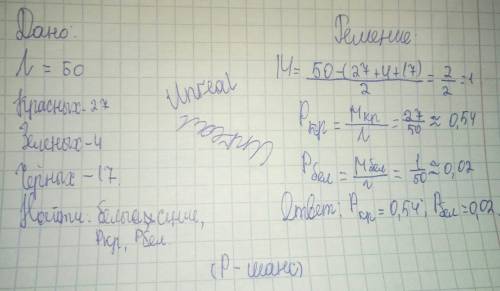 Дано:
n = 50
Красных-27
Зеленых-4
Черных-17.
Найти: белые, синие,
Pкр, Pбел
Unreal
Unreal
Решение:
M = 50-(27+4+17) / 2 = 2/2 = 1
Pкр = Mкр/n = 27/50 ≈ 0,54
Pбел = Mбел/n = 1/50 ≈ 0,02
Ответ: Pкр = 0,54; Pбел = 0,02
(P-шанс)